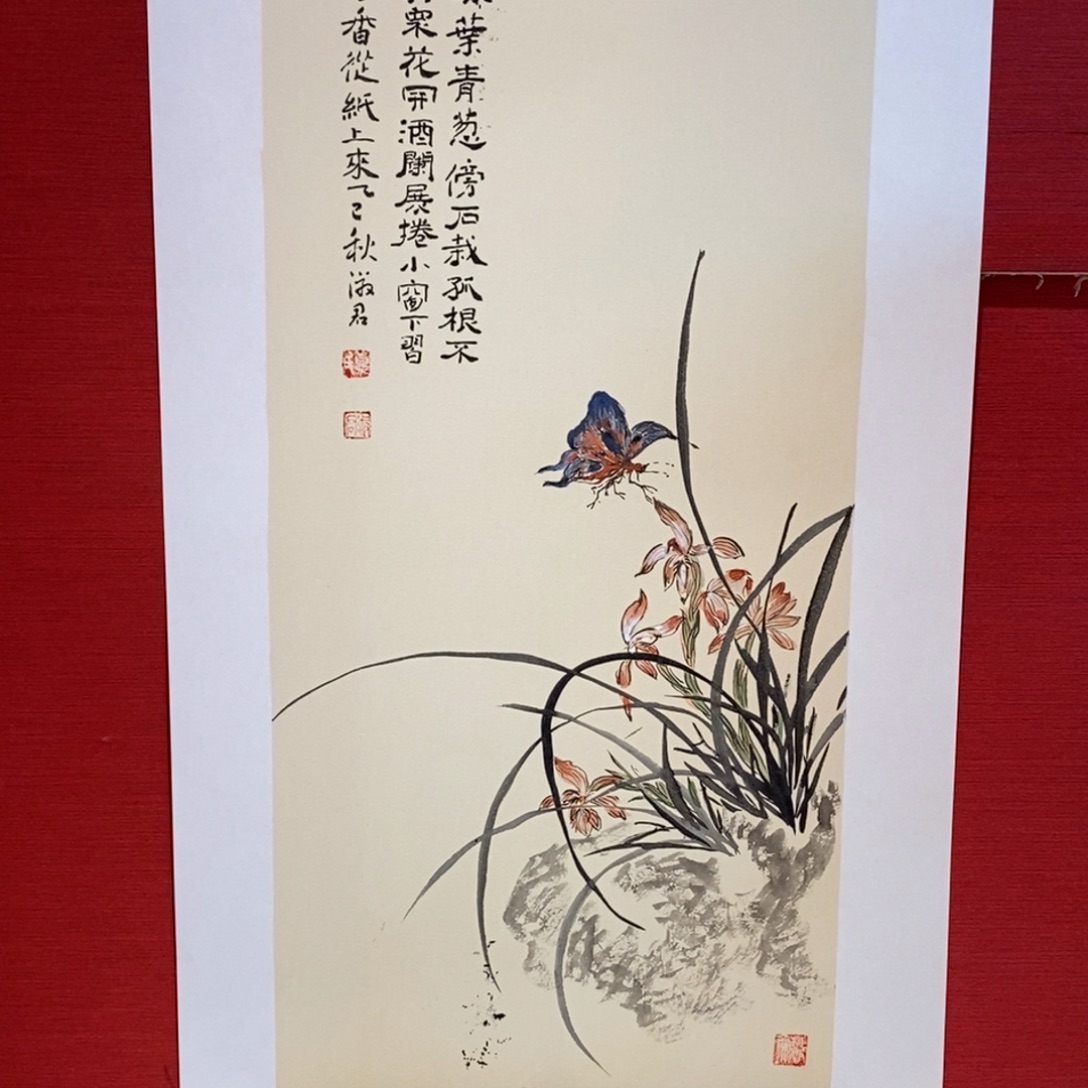 葉青葱傍石栽孤根不
眾花開酒闌展捲小窗下習
香從紙上來乙巳秋淑君